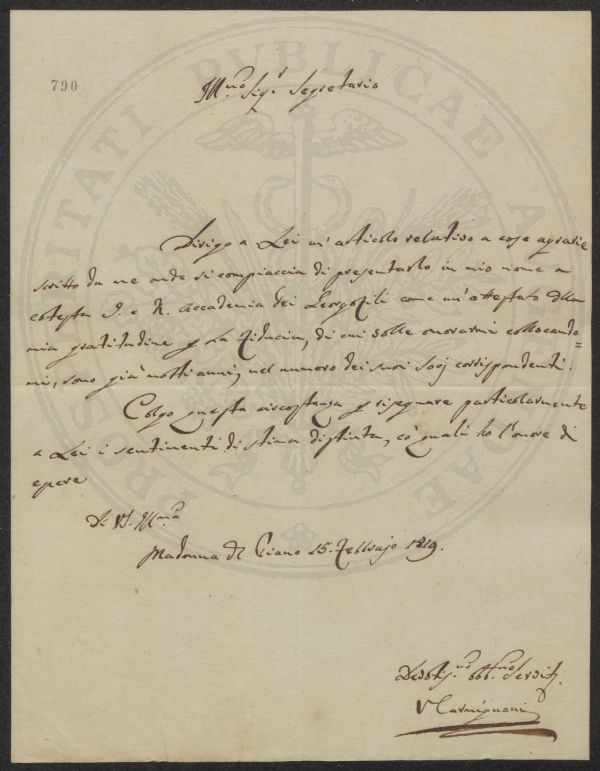 790
Ill.mo Sig.r Segretario
Dirigo a Lei un'articolo relativo a cose agrarie
scritto da me onde si compiaccia di presentarlo in mio nome a
cotesta I. e R. Accademia dei Georgofili come un'attestato della
mia gratitudine p la fiducia, di cui volle onorarmi collocando=
mi, sono già molti anni, nel numero dei suoi Socj corrispondenti.
Colgo questa circostanza p rassegnare particolarmente
a Lei i sentimenti di stima distinta, co' quali ho l'onore di
essere
Di VS. Ill.ma
Madonna del Piano 25. Febbrajo 1819.
Devotis.mo Obb.mo Servit.
V Carmignani
PROSPERITATI PUBLICAE AUGENDAE